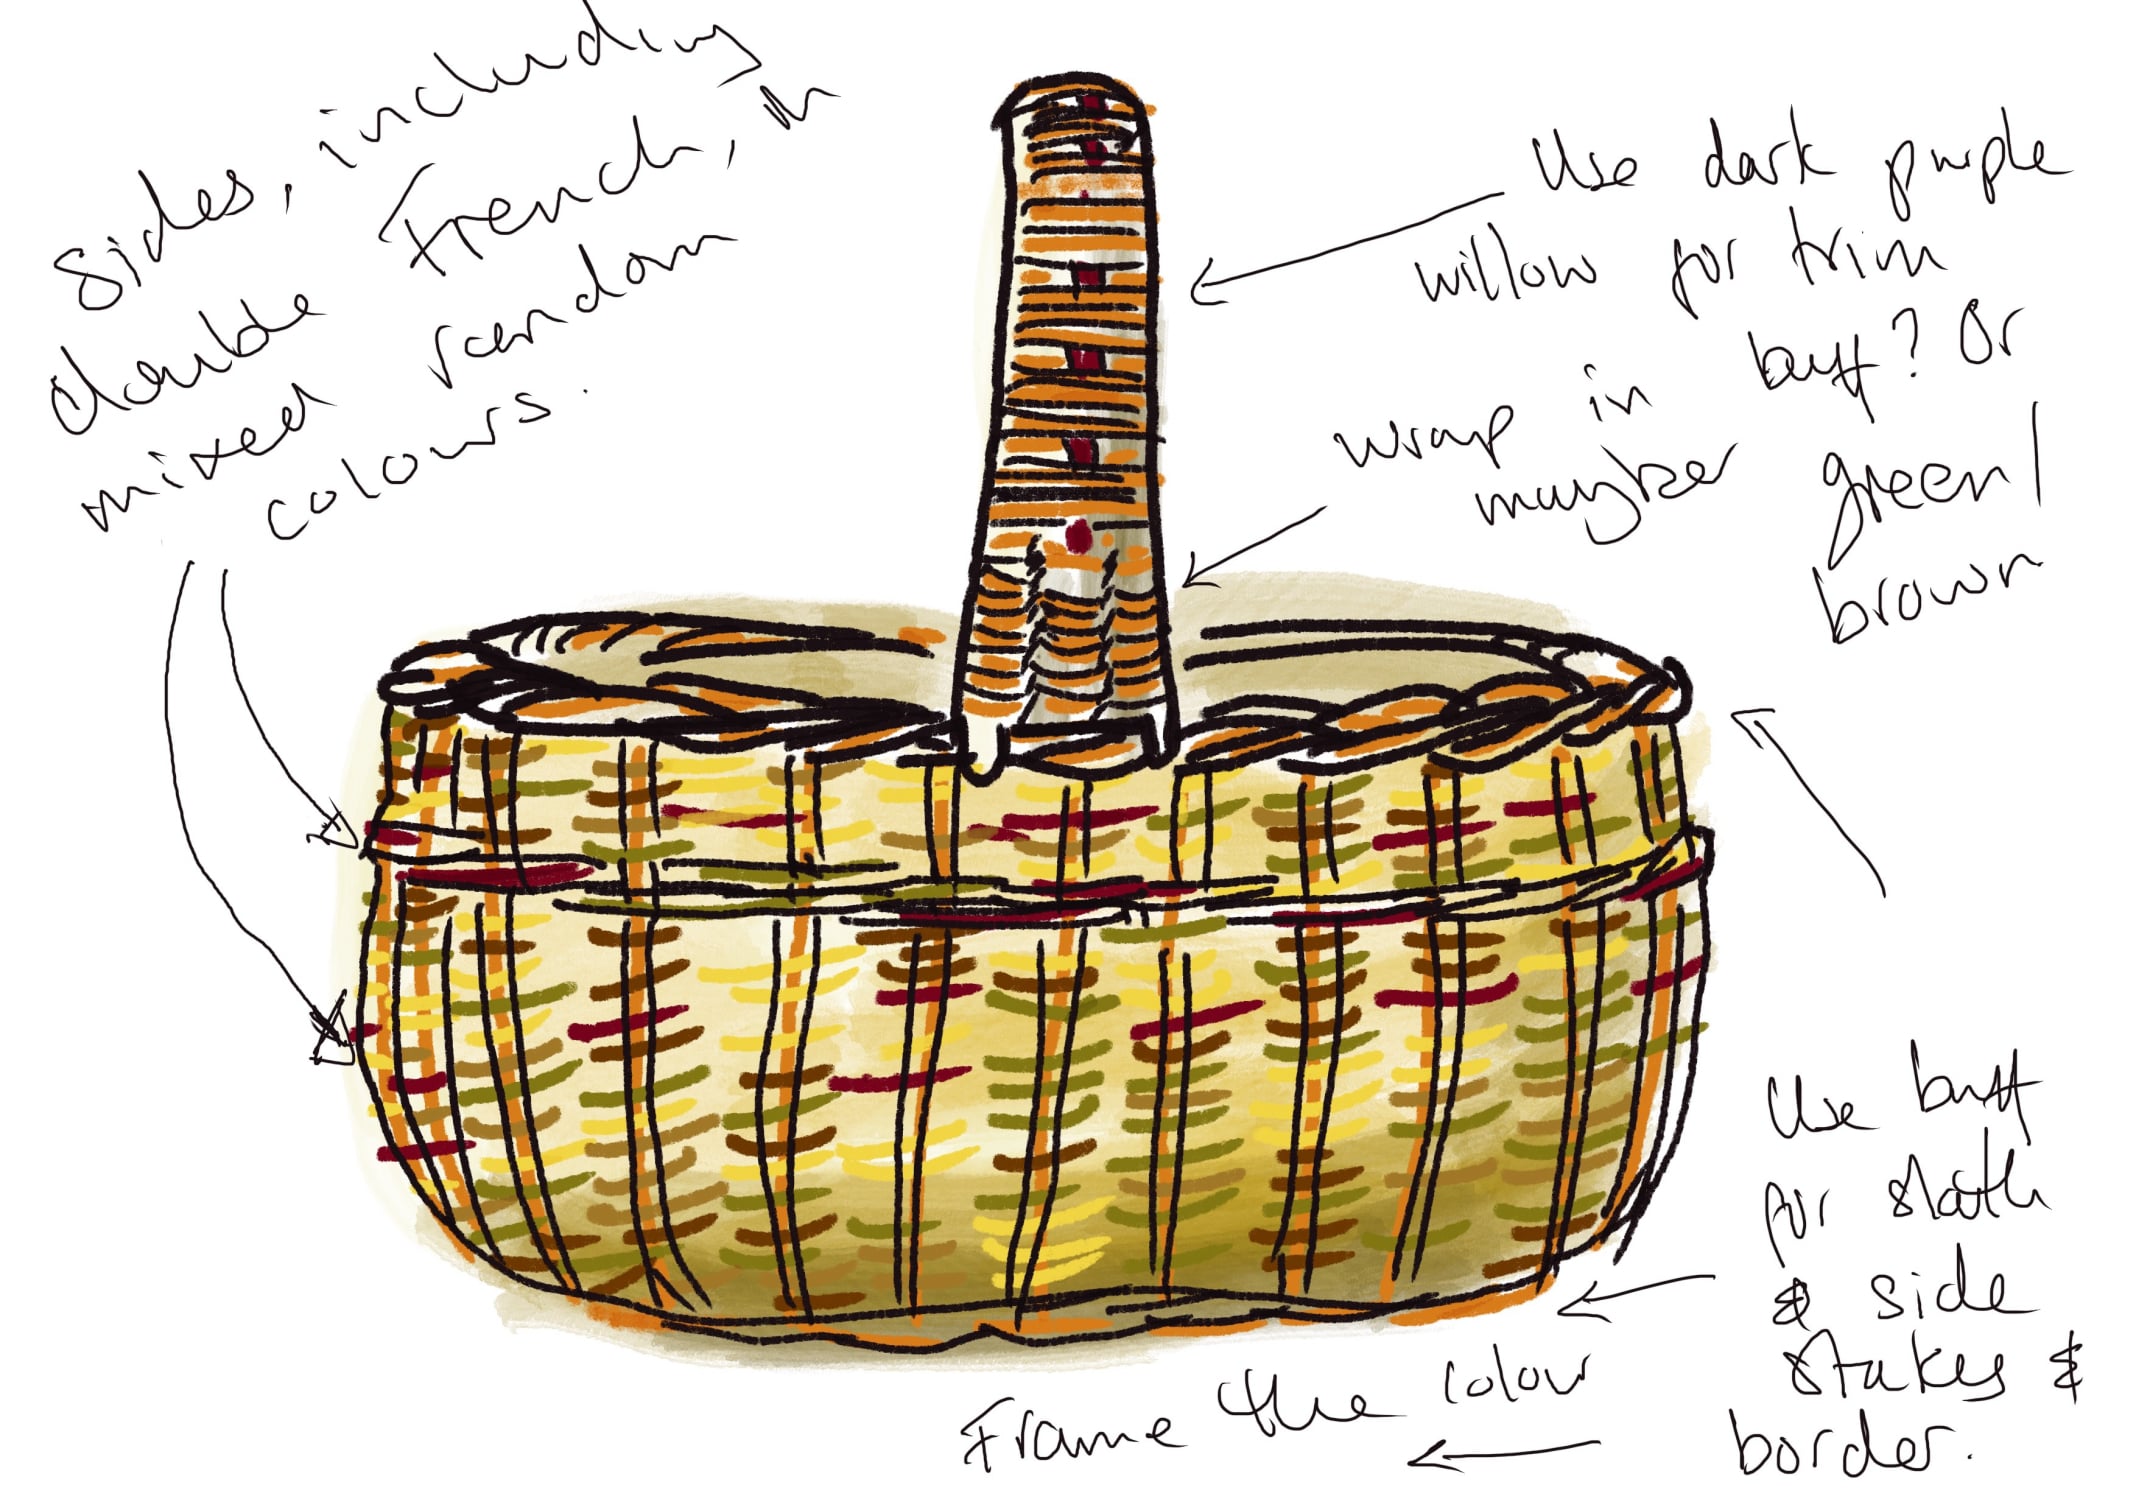 Sides, including
double French, in
mixed random
colours.
Use dark purple
willow for trim
wrap in buff? Or
maybe green/
brown
Use buff
for slath
& side
stakes &
border.
Frame the colour